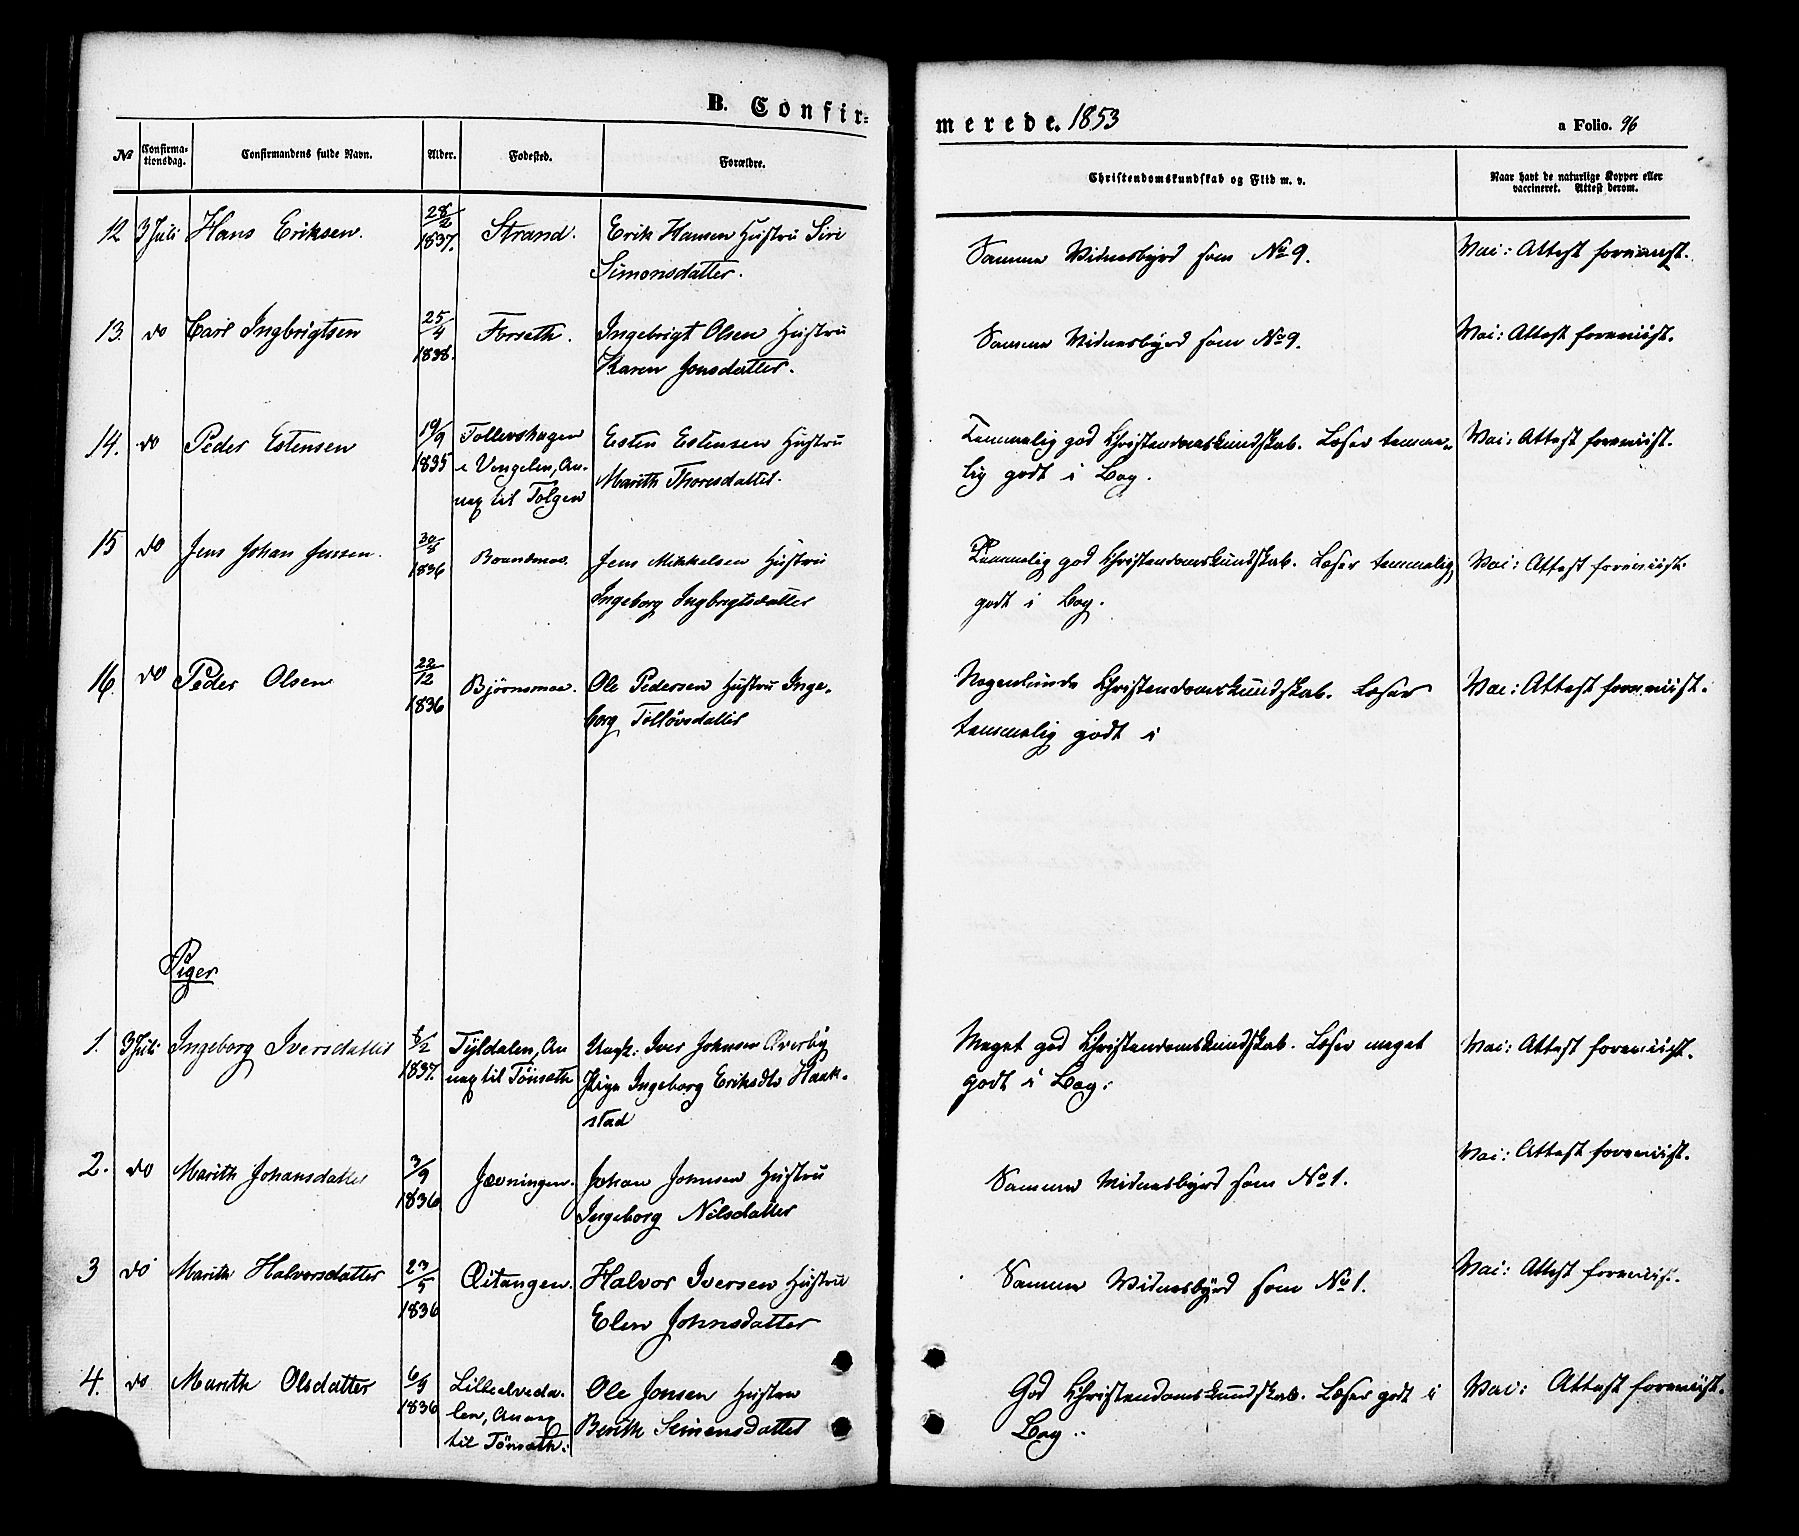 B. Confir=
merede. 1853
a Folio. 96
No
Confirma-
tionsdag.
Confirmandens fulde Navn.
Alder.
Fodested.
Forældre.
Christendomskundskab og Flid m. v.
Naar havt de naturlige Kopper eller
vaccineret. Attest derom.
12 3 Juli Hans Eriksen. 28/2 1837. Strand. Erik Hansen Hustru Siri
Simonsdatter.
Samme Vidnesbyrd som No 9.
Vac: Attest foreviist.
13. do Carl Ingbrigtsen 25/4 1838. Forseth. Ingebrigt Olsen Hustru
Karen Jonsdatter.
Samme Vidnesbyrd som No 9.
Vac: Attest foreviist.
14. do Peder Estensen 19/9 1835 Tollevshagen
i Vingelen, An-
nex til Tolgen
Esten Estensen Hustru
Marith Thoresdatter.
Temmelig god Christendomskundskab. Læser temme-
lig godt i Bog.
Vac: Attest foreviist.
15 do Jens Johan Jensen. 30/8 1836 Brandmoe. Jens Mikkelsen Hustru
Ingeborg Ingbrigtsdatter
Temmelig god Christendomskundskab. Læser temmelig
godt i Bog.
Vac: Attest foreviist.
16. do Peder Olsen 22/12 1836 Bjørnsmoe. Ole Pedersen Hustru Inge-
borg Tølløvsdatter
Nogenlunde Christendomskundskab. Læser
temmelig godt i
Vac: Attest foreviist.
Piger
1. 3 Juli Ingeborg Iversdatter 5/2 1837. Tyldalen, An
nex til Tønseth
Ungk: Iver Johnsen Averby
Pige Ingeborg Eriksdtr Haak-
stad
Meget god Christendomskundskab. Læser meget
godt i Bog.
Vac: Attest foreviist.
2. do Marith Johansdatter 3/9 1836 Jævningen. Johan Johnsen Hustru
Ingeborg Nilsdatter
Samme Vidnesbyrd som No 1.
Vac: Attest foreviist.
3 do Marith Halvorsdatter 23/5 1836 Qitangen. Halvor Iversen Hustru
Elen Johnsdatter
Samme Vidnesbyrd som No 1.
Vac: Attest foreviist.
4. do Marith Olsdatter 6/9 1836 Lilleelveda-
len, Annex
til Tønseth.
Ole Jonsen Hustru
Berith Simensdatter
God Christendomskundskab. Læser godt i
Bog.
Vac: Attest foreviist.